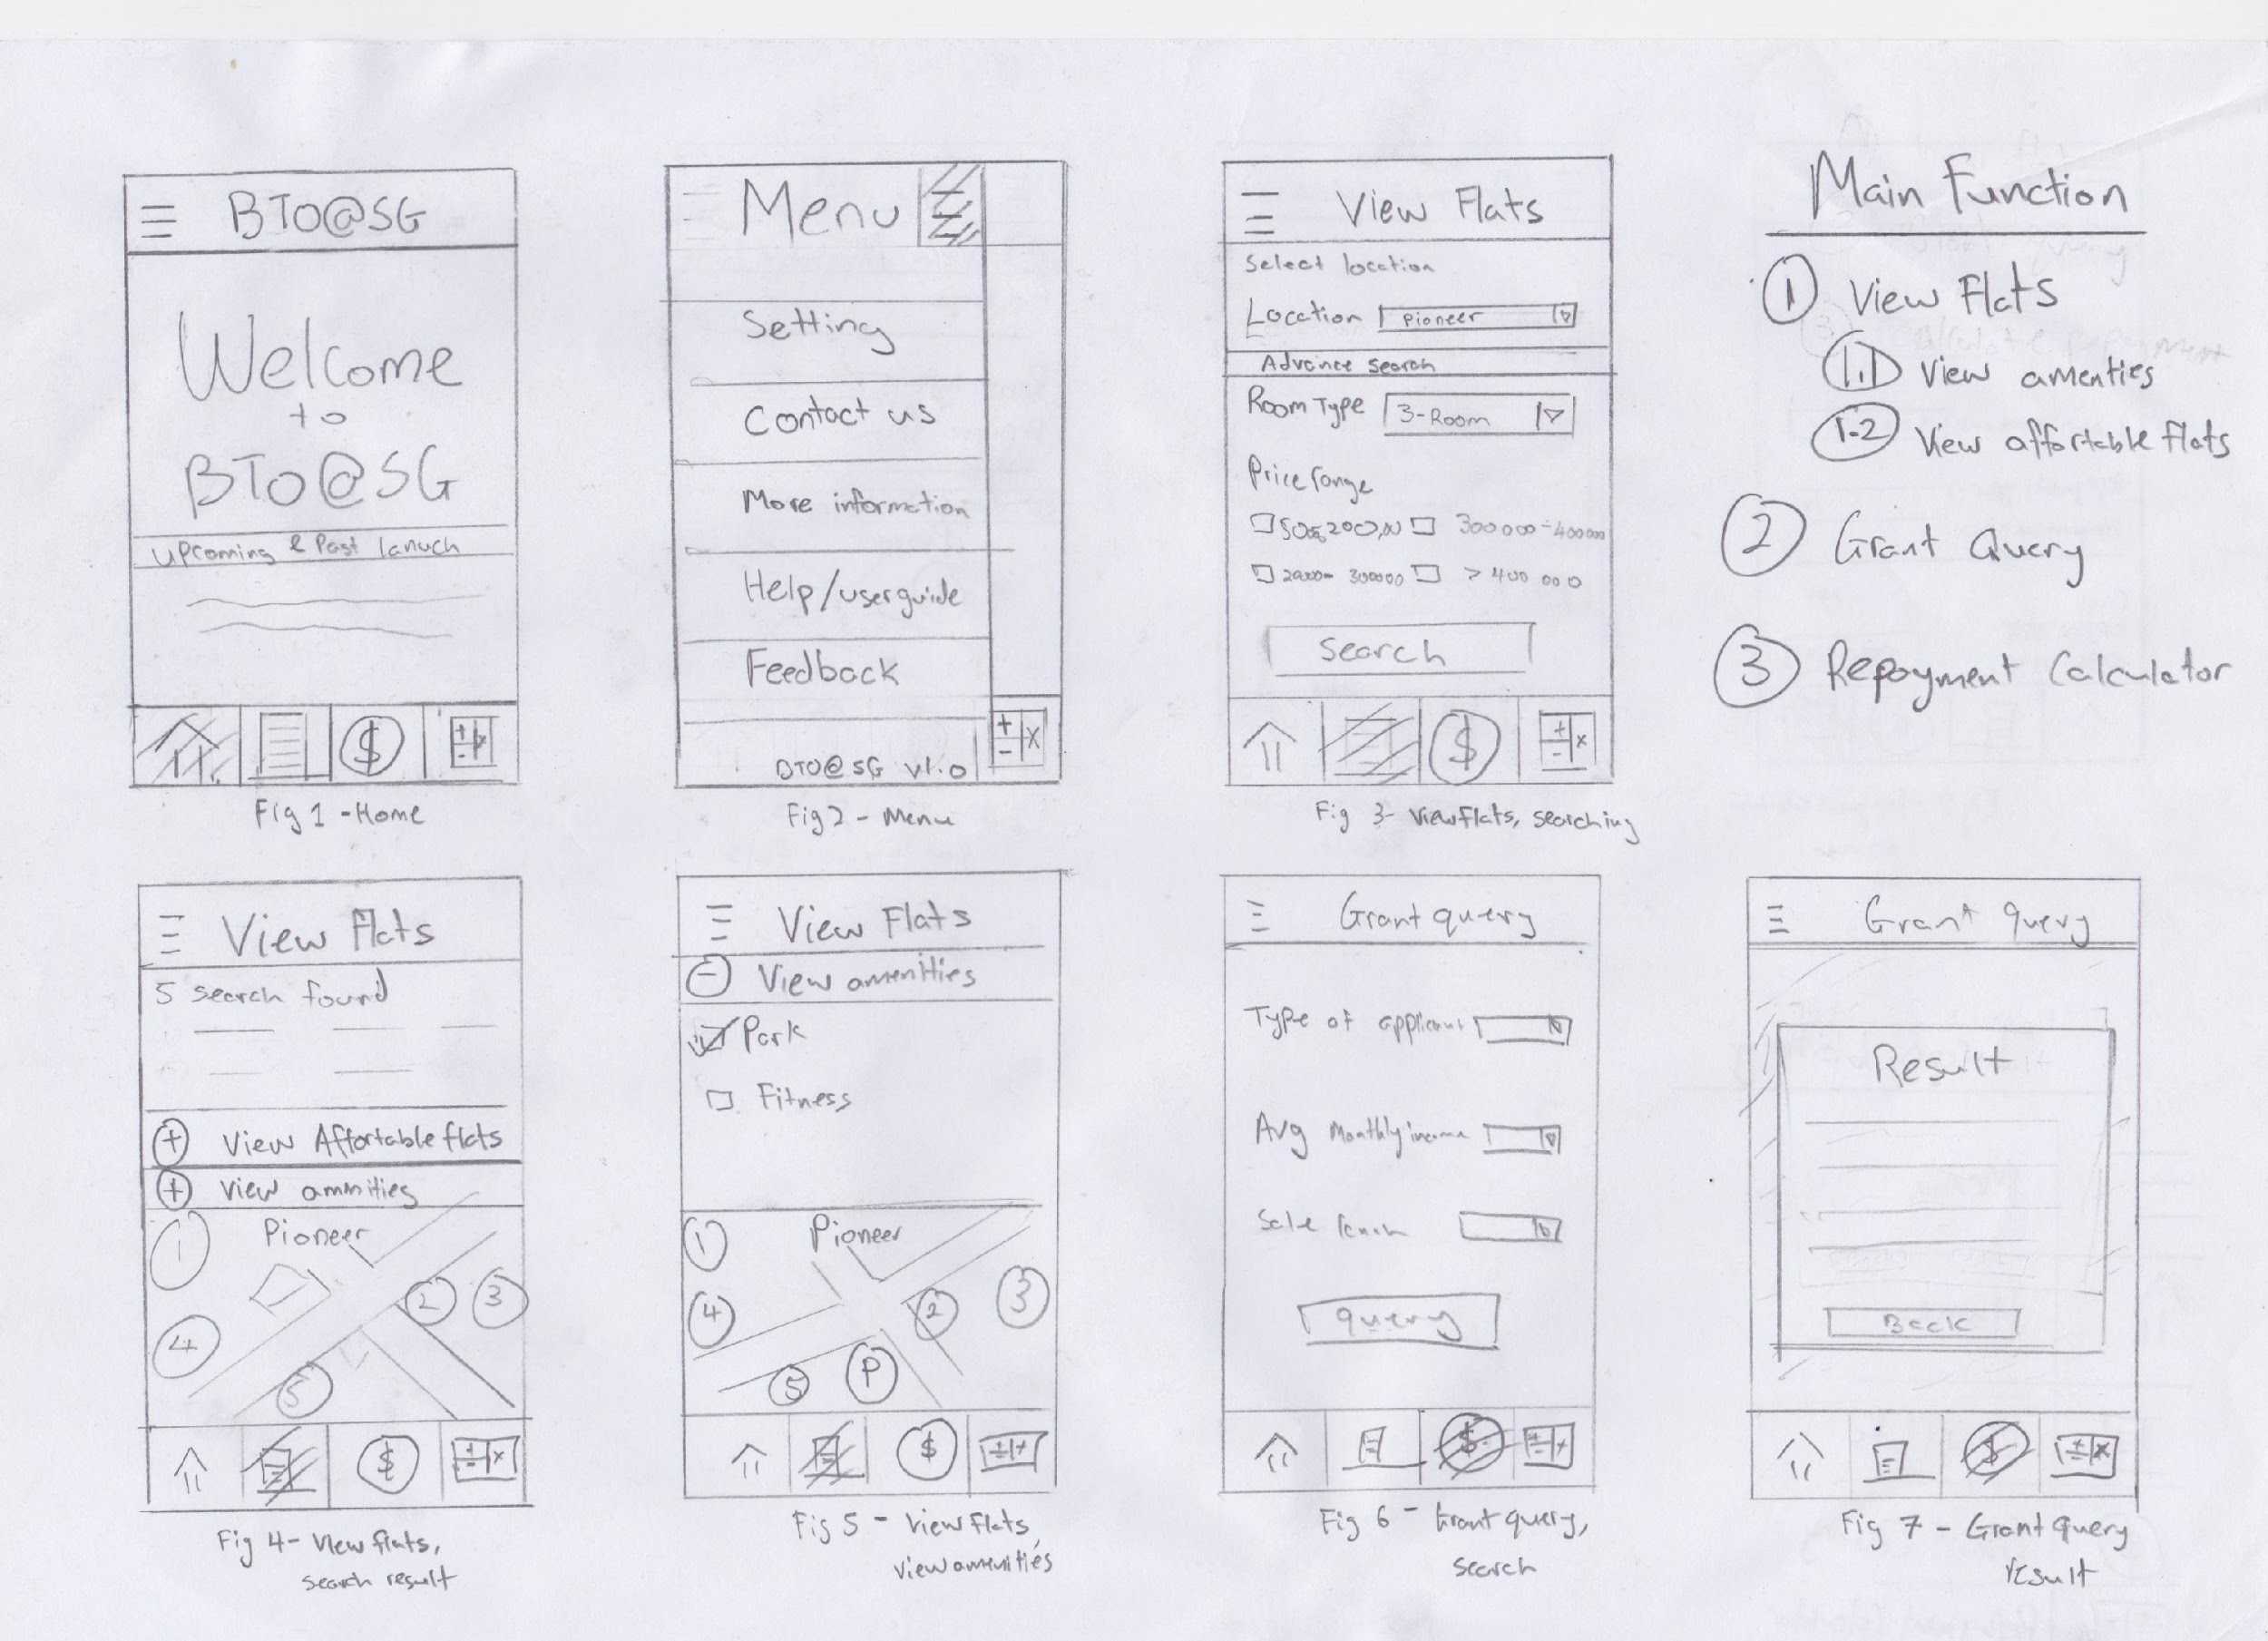 BTO@SG
Welcome
to
BTO@SG
Upcoming & Past lanuch
$
+ - x
Fig 1 - Home
Menu
Setting
Contact us
More information
Help/userguide
Feedback
BTO@SG v1.0
+ - x
Fig 2 - Menu
View Flats
Select location
Location Pioneer
Advance search
Room Type 3-Room
Price range
300 000 - 400 000
300000 > 400 000
Search
$
+ - x
Fig 3 - View flats, searching
Main Function
1 View Flats
1.1 View amenties
1.2 View affortable flats
2 Grant Query
3 Repayment Calculator
View flats
5 search found
+ View Affortable flats
+ View ammities
1 Pioneer
2 3
4
5
$
Fig 4 - View flats,
search result
View Flats
- View amenities
Park
Fitness
1 Pioneer
4 2 3
5 P
$
Fig 5 - View flats,
view amenities
Grant query
Type of applicant
Avg Monthly income
Sale
query
$
Fig 6 - Grant query,
search
Grant query
Result
Back
$
Fig 7 - Grant query
result